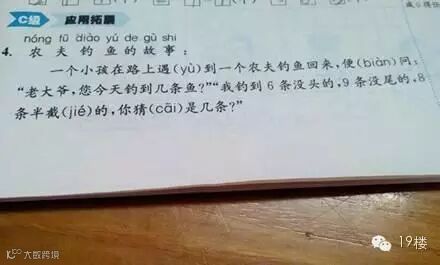 C级 应用拓展
nóng fū diào yú de gù shi
4. 农夫钓鱼的故事：
一个小孩在路上遇(yù)到一个农夫钓鱼回来，便(biàn)问：
“老大爷，您今天钓到几条鱼？”“我钓到6条没头的，9条没尾的，8
条半截(jié)的，你猜(cāi)是几条？”
19楼
大数跨境